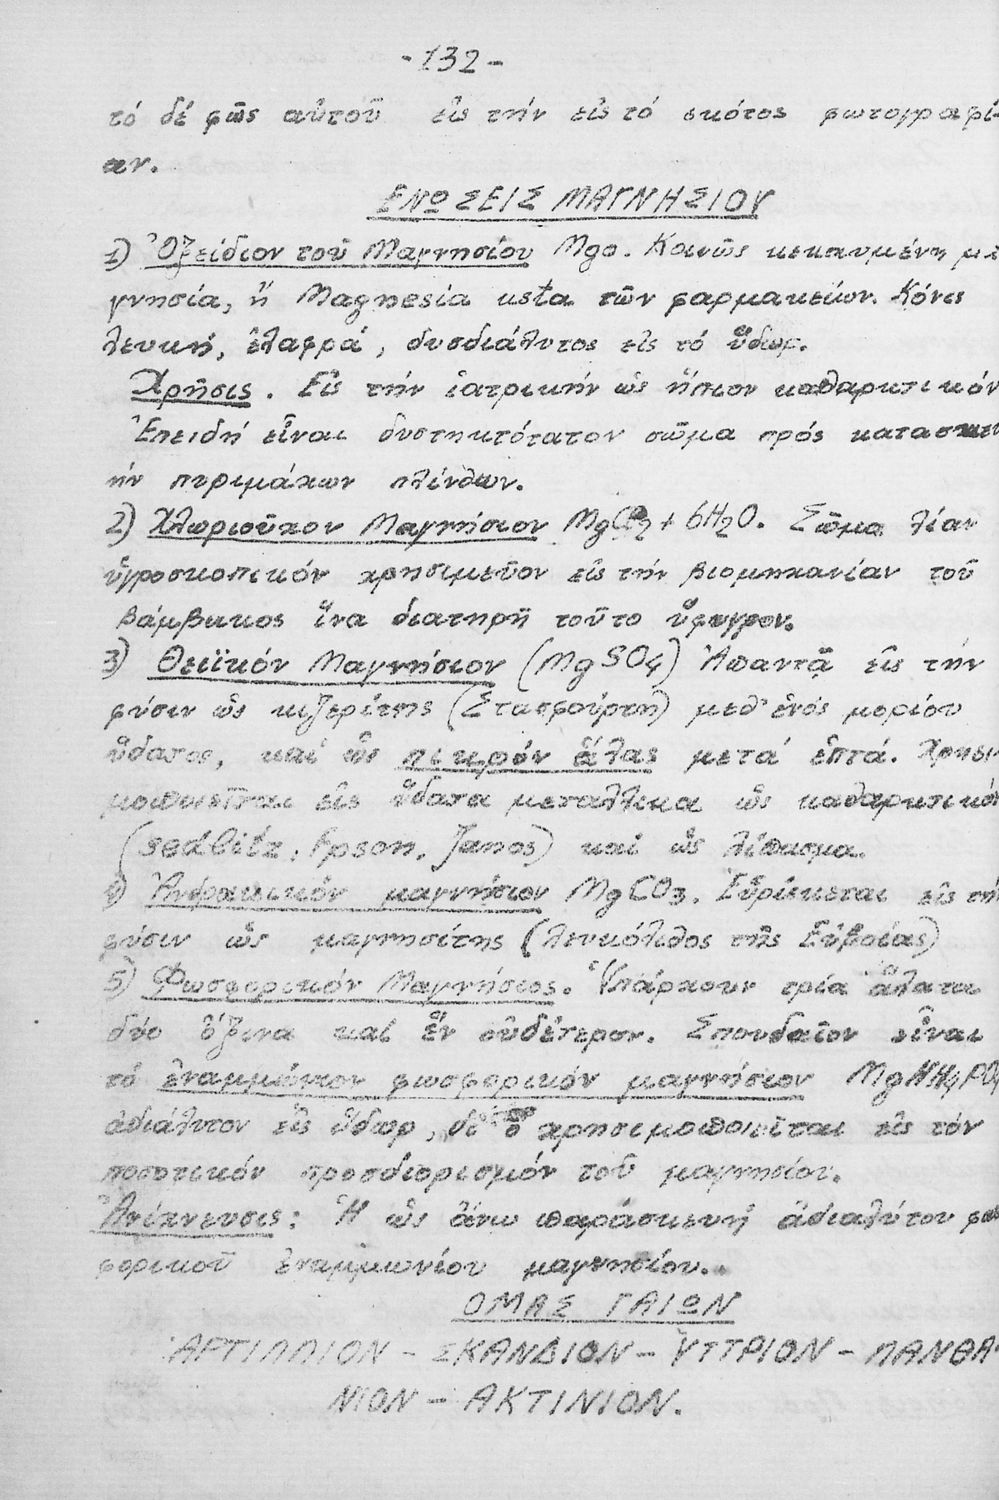 -132-
τό δέ φῶς αὐτοῦ εἰς τήν εἰς τό σκότος φωτογραφί-
αν.
ΕΝΩΣΕΙΣ ΜΑΓΝΗΣΙΟΥ
1) Ὀξείδιον τοῦ Μαγνησίου MgO. Κοινῶς κεκαυμένη μα
γνησία, ἤ Magnesia usta τῶν φαρμακείων. Κόνις
λευκή, ἐλαφρά, δυσδιάλυτος εἰς τό ὕδωρ.
Χρῆσις. Εἰς τήν ἰατρικήν ὡς ἤπιον καθαρκτικόν
Ἐπειδή εἶναι δυστηκτότατον σῶμα πρός κατασκευ
ήν πυριμάχων πλίνθων.
2) Χλωριοῦχον Μαγνήσιον MgCl2 + 6H2O. Σῶμα λίαν
ὑγροσκοπικόν χρησιμεῦον εἰς τήν βιομηχανίαν τοῦ
βάμβακος ἵνα διατηρῇ τοῦτο ὕφυγρον.
3) Θειϊκόν Μαγνήσιον (MgSO4) Ἀπαντᾷ εἰς τήν
φύσιν ὡς κιζερίτης (Στασφούρτη) μεθ' ἑνός μορίου
ὕδατος, καί ὡς πικρόν ἅλας μετά ἑπτά. Χρησι-
μοποιεῖται εἰς ὕδατα μεταλλικά ὡς καθαρκτικόν
(Sedlitz, Epson, Janos) καί ὡς λίπασμα.
4) Ἀνθρακικόν μαγνήσιον MgCO3. Εὑρίσκεται εἰς τήν
φύσιν ὡς μαγνησίτης (λευκόλιθος τῆς Εὐβοίας)
5) Φωσφορικόν Μαγνήσιος. Ὑπάρχουν τρία ἅλατα
δύο ὄξινα καί ἕν οὐδέτερον. Σπουδαῖον εἶναι
τό ἐναμμώνιον φωσφορικόν μαγνήσιον MgNH4PO4
ἀδιάλυτον εἰς ὕδωρ, δι' ὅ χρησιμοποιεῖται εἰς τόν
ποσοτικόν προσδιορισμόν τοῦ μαγνησίου.
Ἀνίχνευσις: Ἡ ὡς ἄνω παρασκευή ἀδιαλύτου φωσ
φορικοῦ ἐναμμωνίου μαγνησίου.
ΟΜΑΣ ΓΑΙΩΝ
ΑΡΓΙΛΛΙΟΝ - ΣΚΑΝΔΙΟΝ - ΥΤΤΡΙΟΝ - ΛΑΝΘΑ-
ΝΙΟΝ - ΑΚΤΙΝΙΟΝ.